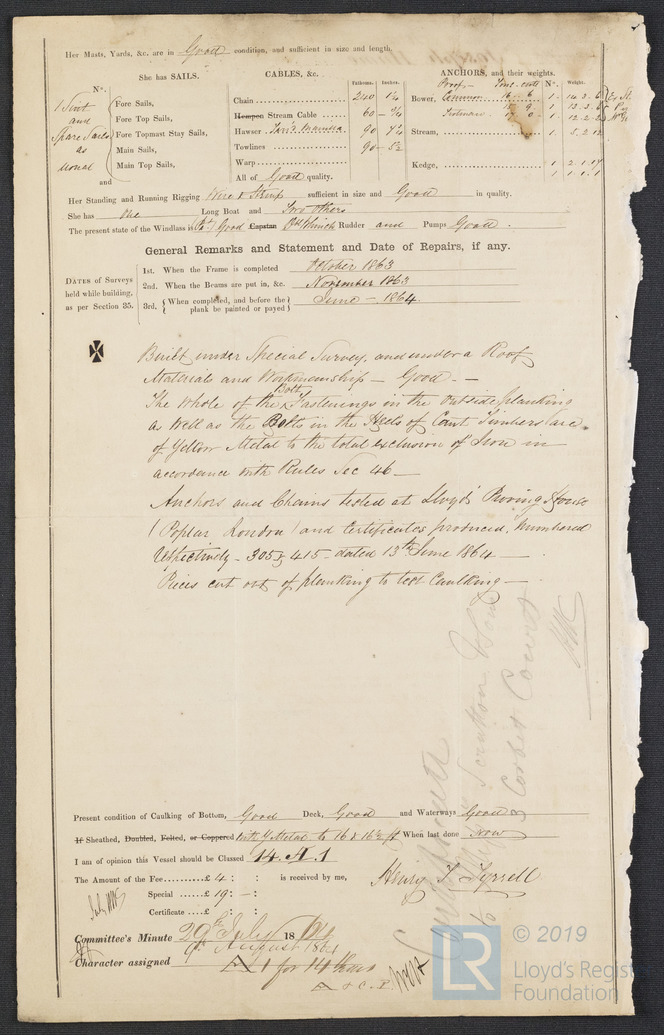 Her Masts, Yards, &c. are in Good condition, and sufficient in size and length.
She has SAILS.
CABLES, &c.
Fathoms. Inches.
ANCHORS, and their weights.
Proof
No.
Weight.
No.
1 Suit
and
Spare Sails
as
usual
Fore Sails,
Fore Top Sails,
Fore Topmast Stay Sails,
Main Sails,
Main Top Sails,
and
Chain 240
Hempen Stream Cable 60
Hawser Manilla 90
Towlines 90
Warp
All of Good quality.
Bower, Common
Stream, 1
Kedge, 1
Her Standing and Running Rigging Wire & Hemp sufficient in size and Good in quality.
She has One Long Boat and Two others
The present state of the Windlass is Good Capstan & Winch Rudder and Pumps Good.
General Remarks and Statement and Date of Repairs, if any.
DATES of Surveys
held while building,
as per Section 35.
1st. When the Frame is completed October 1863
2nd. When the Beams are put in, &c. November 1863
3rd. { When completed, and before the plank be painted or payed } June - 1864.
Built under Special Survey, and under a Roof
Materials and Workmanship - Good. -
The whole of the Bolt Fastenings in the outside planking
as well as the Bolts in the Heels of Cant Timbers are
of Yellow Metal to the total exclusion of Iron in
accordance with Rules Sec 46 -
Anchors and Chains tested at Lloyd's Proving House
(Poplar London) and Certificates produced, Numbered
respectively - 305 & 415 - dated 13th June 1864 -
Pieces cut out of planking to test Caulking -
Present condition of Caulking of Bottom, Good Deck, Good and Waterways Good
If Sheathed, Doubled, Felted, or Coppered with Y Metal to 16 & 16½ ft When last done Now
I am of opinion this Vessel should be Classed 14. A. 1
The Amount of the Fee..........£ 4 : - : is received by me, Henry T. Tyrrell
Special ......£ 19 : - :
Certificate ...£ : :
Committee's Minute 29th July 1864
9th August 1864
Character assigned A 1 for 14 Years
© 2019
LR
Lloyd's Register
Foundation